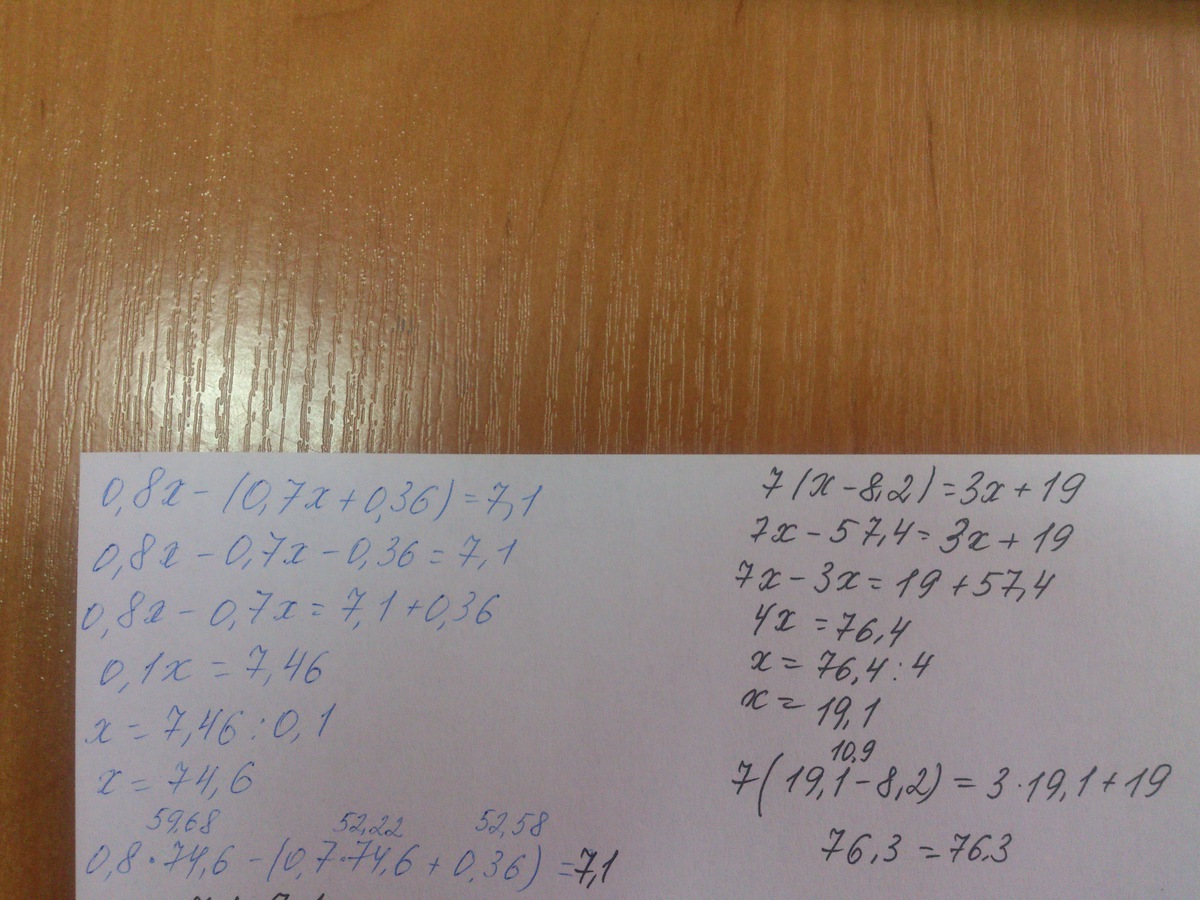 0,8x - (0,7x + 0,36) = 7,1
0,8x - 0,7x - 0,36 = 7,1
0,8x - 0,7x = 7,1 + 0,36
0,1x = 7,46
x = 7,46 : 0,1
x = 74,6
59,68 52,22 52,58
0,8 · 74,6 - (0,7 · 74,6 + 0,36) = 7,1
7(x - 8,2) = 3x + 19
7x - 57,4 = 3x + 19
7x - 3x = 19 + 57,4
4x = 76,4
x = 76,4 : 4
x = 19,1
10,9
7(19,1 - 8,2) = 3 · 19,1 + 19
76,3 = 76,3